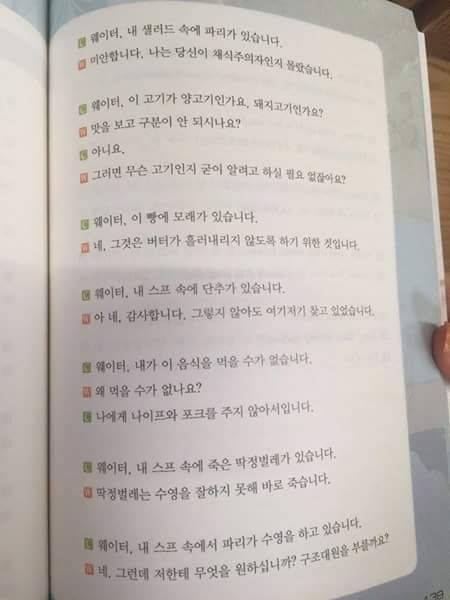 C 웨이터, 내 샐러드 속에 파리가 있습니다.
W 미안합니다. 나는 당신이 채식주의자인지 몰랐습니다.
C 웨이터, 이 고기가 양고기인가요, 돼지고기인가요?
W 맛을 보고 구분이 안 되시나요?
C 아니요.
W 그러면 무슨 고기인지 굳이 알려고 하실 필요 없잖아요?
C 웨이터, 이 빵에 모래가 있습니다.
W 네, 그것은 버터가 흘러내리지 않도록 하기 위한 것입니다.
C 웨이터, 내 스프 속에 단추가 있습니다.
W 아 네, 감사합니다. 그렇지 않아도 여기저기 찾고 있었습니다.
C 웨이터, 내가 이 음식을 먹을 수가 없습니다.
W 왜 먹을 수가 없나요?
C 나에게 나이프와 포크를 주지 않아서입니다.
C 웨이터, 내 스프 속에 죽은 딱정벌레가 있습니다.
W 딱정벌레는 수영을 잘하지 못해 바로 죽습니다.
C 웨이터, 내 스프 속에서 파리가 수영을 하고 있습니다.
W 네. 그런데 저한테 무엇을 원하십니까? 구조대원을 부를까요?